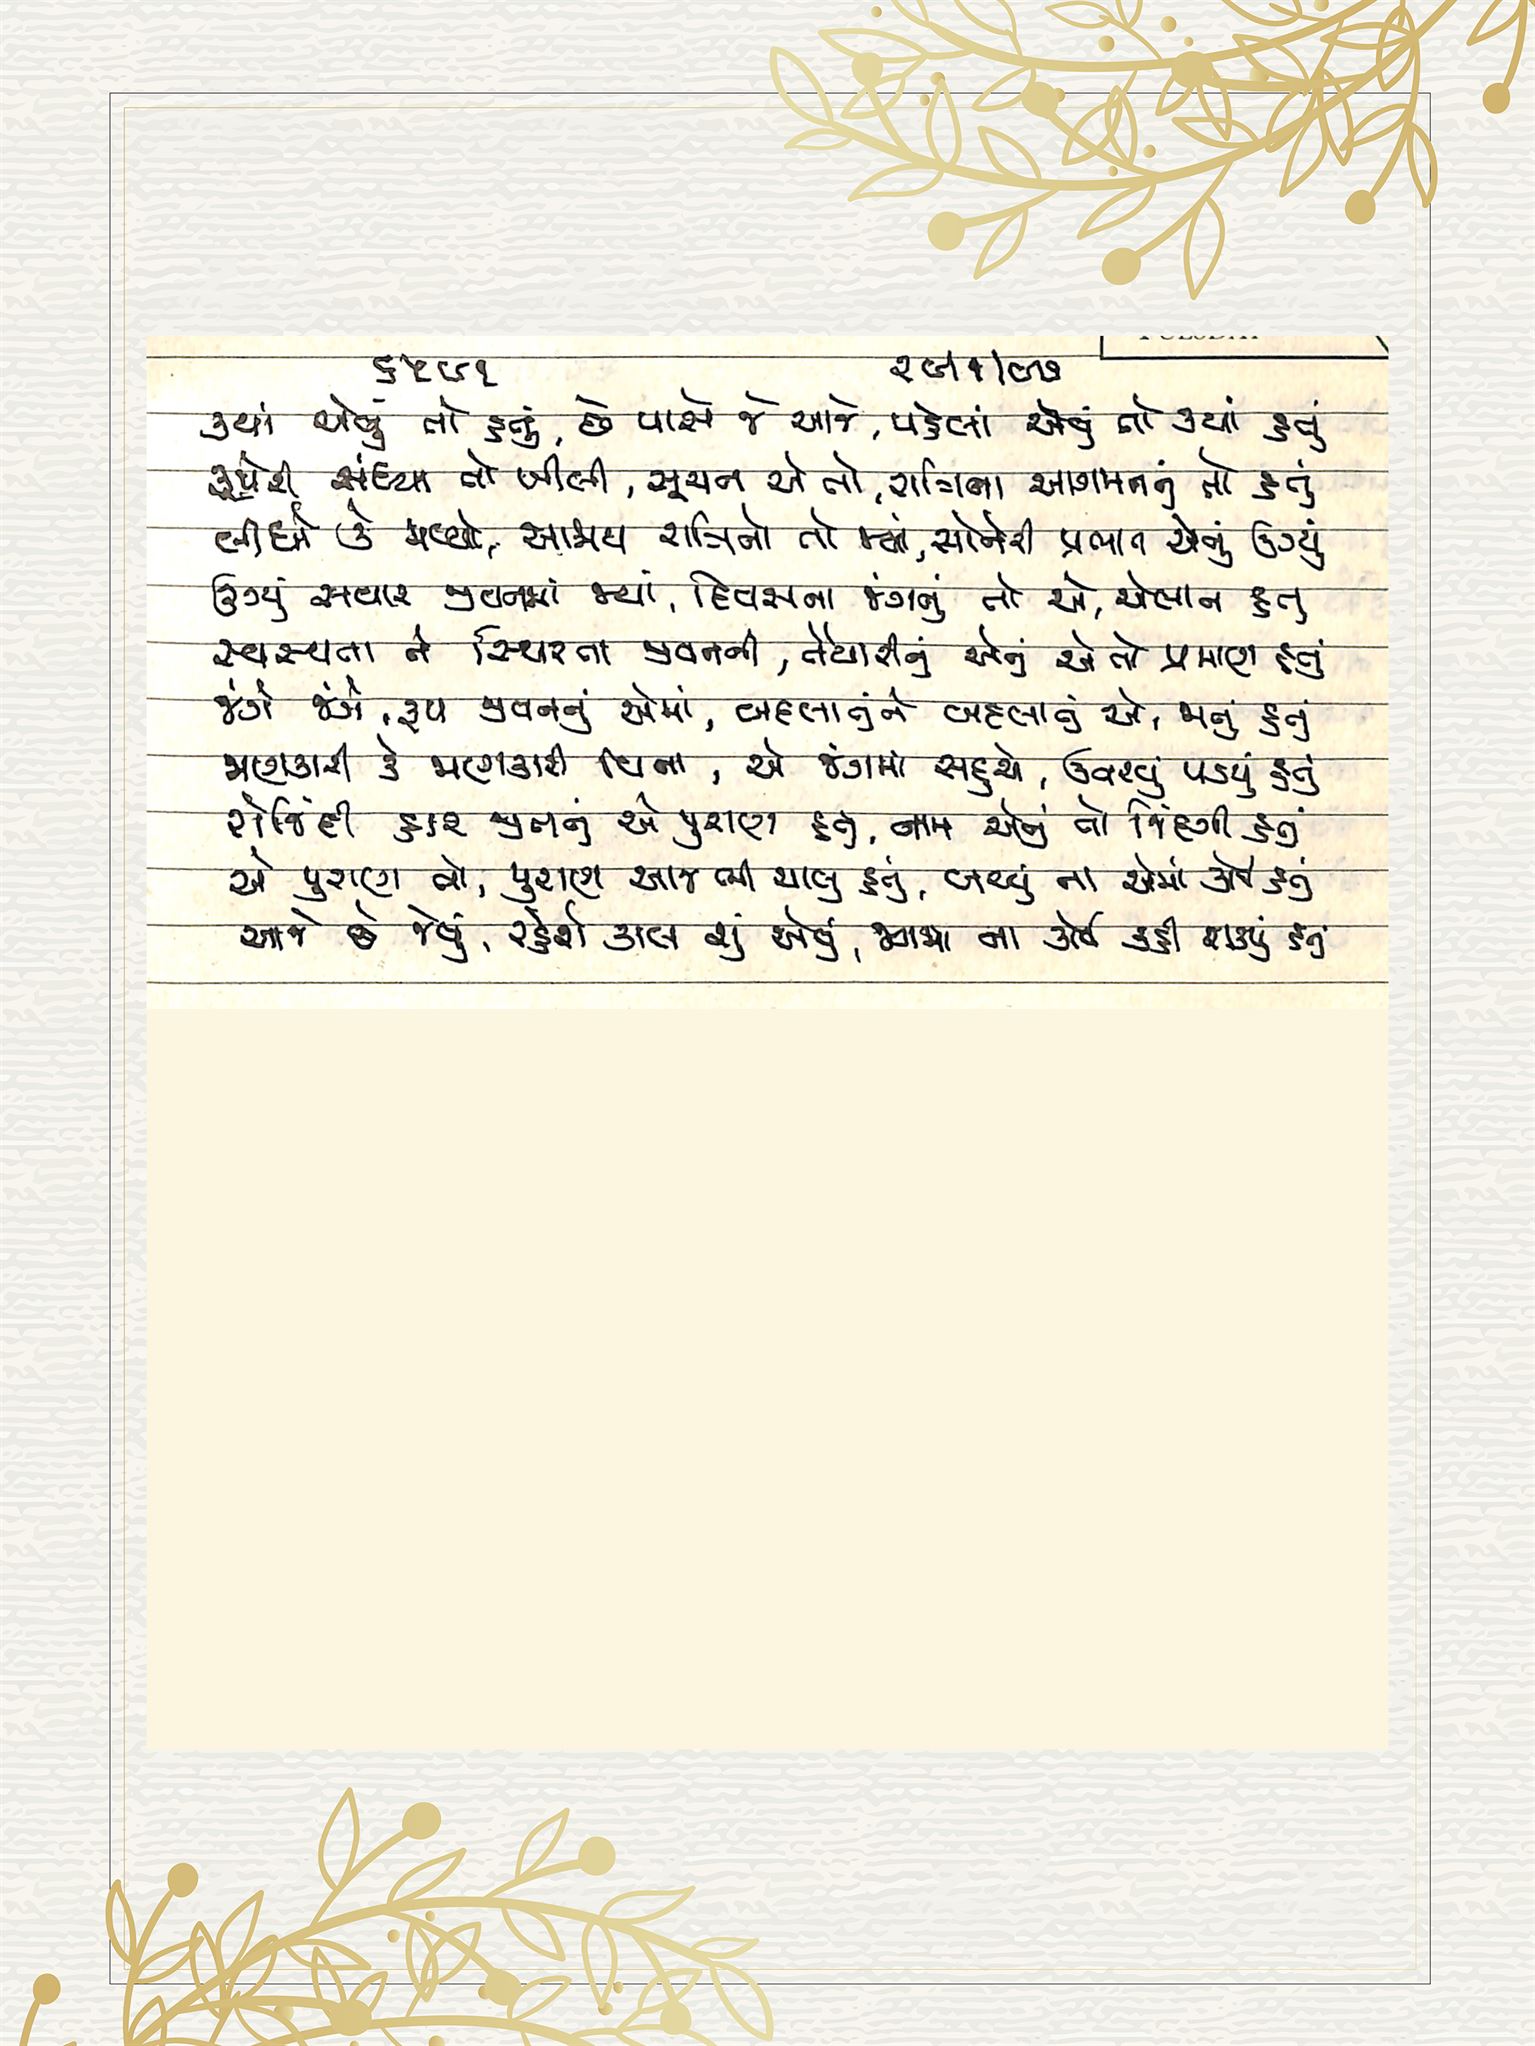 ૬૫૯૧ ૨૯/૧/૯૭
ક્યાં એવું તો હતું, છે પાસે જે આજે, પહેલાં એવું તો ક્યાં હતું
રૂપેરી સંધ્યા તો ખીલી, સૂચન એ તો, રાત્રિના આગમનનું તો હતું
લીધો કે મળ્યો, આશ્રય રાત્રિનો તો જ્યાં, સોનેરી પ્રભાત એનું ઉગ્યું
ઉગ્યું સવાર જીવનમાં જ્યાં, દિવસના જંગનું તો એ, એલાન હતુ
સ્વસ્થતા ને સ્થિરતા જીવનની, તૈયારીનું એનું એ તો પ્રમાણ હતું
જંગે જંગે, રૂપ જીવનનું એમાં, બદલાતુંને બદલાતું એ, જતું હતું
જાણકારી કે જાણકારી વિના, એ જંગમાં સહુએ, ઉતરવું પડયું હતું
રોજિંદી હાર જીતનું એ પુરાણ હતુ, નામ એનું તો જિંદગી હતું
એ પુરાણ તો, પુરાણ આજ ભી ચાલુ હતું, બચ્યું ના એમાં કોઈ હતું
આજે છે જેવું, રહેશે કાલ શું એવું, ના કોઈ કહી શક્યું હતું